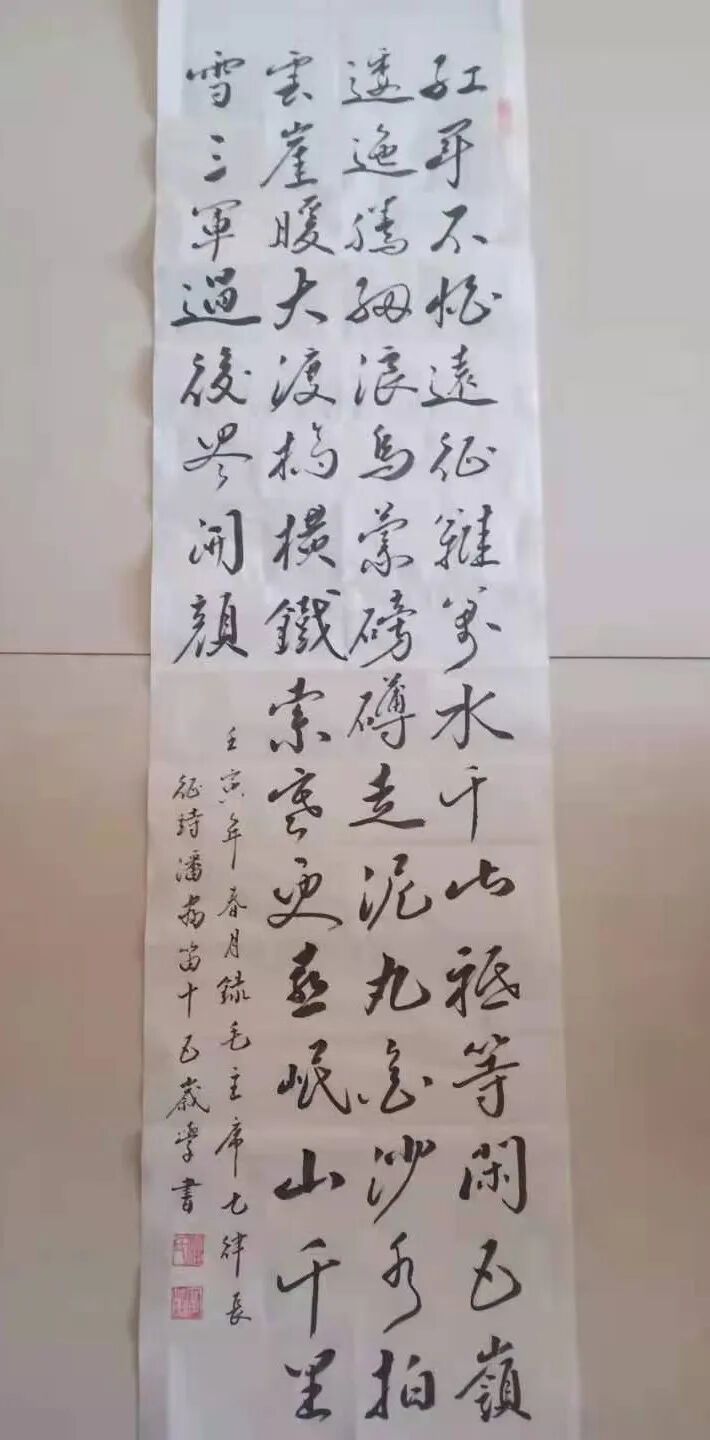 紅軍不怕遠征難萬水千山祗等閑五嶺
逶迤騰細浪烏蒙磅礴走泥丸金沙水拍
雲崖暖大渡橋橫鐵索寒更喜岷山千里
雪三軍過後盡開顏
壬寅年春月録毛主席七律長
征詩潘十五歲學書